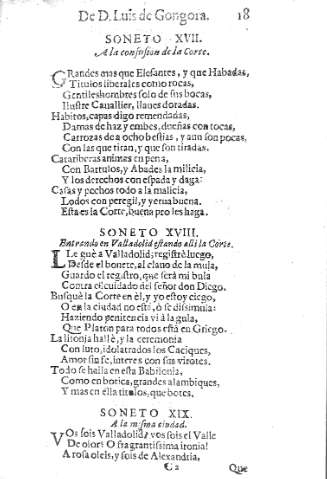 De D. Luis de Gongora. 18
SONETO XVII.
A la confusion de la Corte.
GRandes mas que Elefantes, y que Habadas,
Titulos liberales como rocas,
Gentileshombres solo de sus bocas,
Ilustre Cauallier, llaues doradas.
Habitos, capas digo remendadas,
Damas de haz y embes, dueñas con tocas,
Carrozas de a ocho bestias, y aun son pocas,
Con las que tiran, y que son tiradas.
Catariberas animas en pena,
Con Bartulos, y Abades la milicia,
Y los derechos con espada y daga:
Casas y pechos todo a la malicia,
Lodos con peregil, y yerua buena.
Esta es la Corte, buena pro les haga.
SONETO XVIII.
Entrando en Valladolid estando alli la Corte.
LLeguè a Valladolid; registrè luego,
Desde el bonete, al clauo de la mula,
Guardo el registro, que serà mi bula
Contra el cuidado del señor don Diego.
Busquè la Corte en èl, y yo estoy ciego,
O en la ciudad no està, ò se dissimula:
Haziendo penitencia vi à la gula,
Que Platon para todos està en Griego.
La lisonja hallè, y la ceremonia
Con luto, idolatrados los Caciques,
Amor sin fe, interes con sus virotes.
Todo se halla en esta Babilonia,
Como en botica, grandes alambiques,
Y mas en ella titulos, que botes.
SONETO XIX.
A la misma ciudad.
VOs sois Valladolid? vos sois el Valle
De olor? O fragrantissima ironia!
A rosa oleis, y sois de Alexandria,
C 2 Que